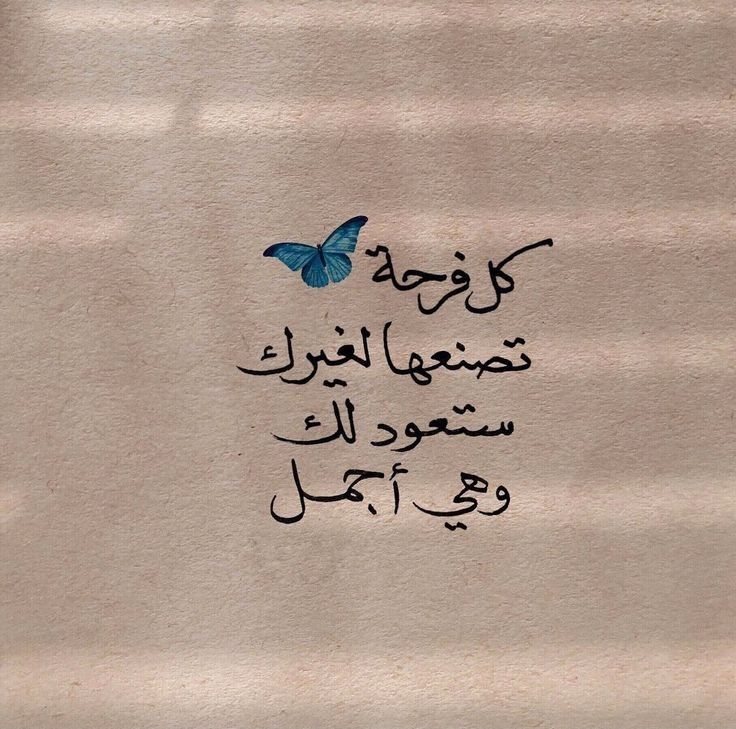 كل فرحة
تصنعها لغيرك
ستعود لك
وهي أجمل